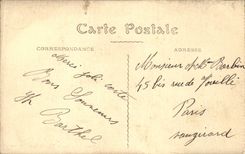 Carte Postale
CORRESPONDANCE
ADRESSE
Merci jolie carte
Bons Souvenirs
Barthel
Monsieur Barbin
45 bis rue de
Paris
Vaugirard